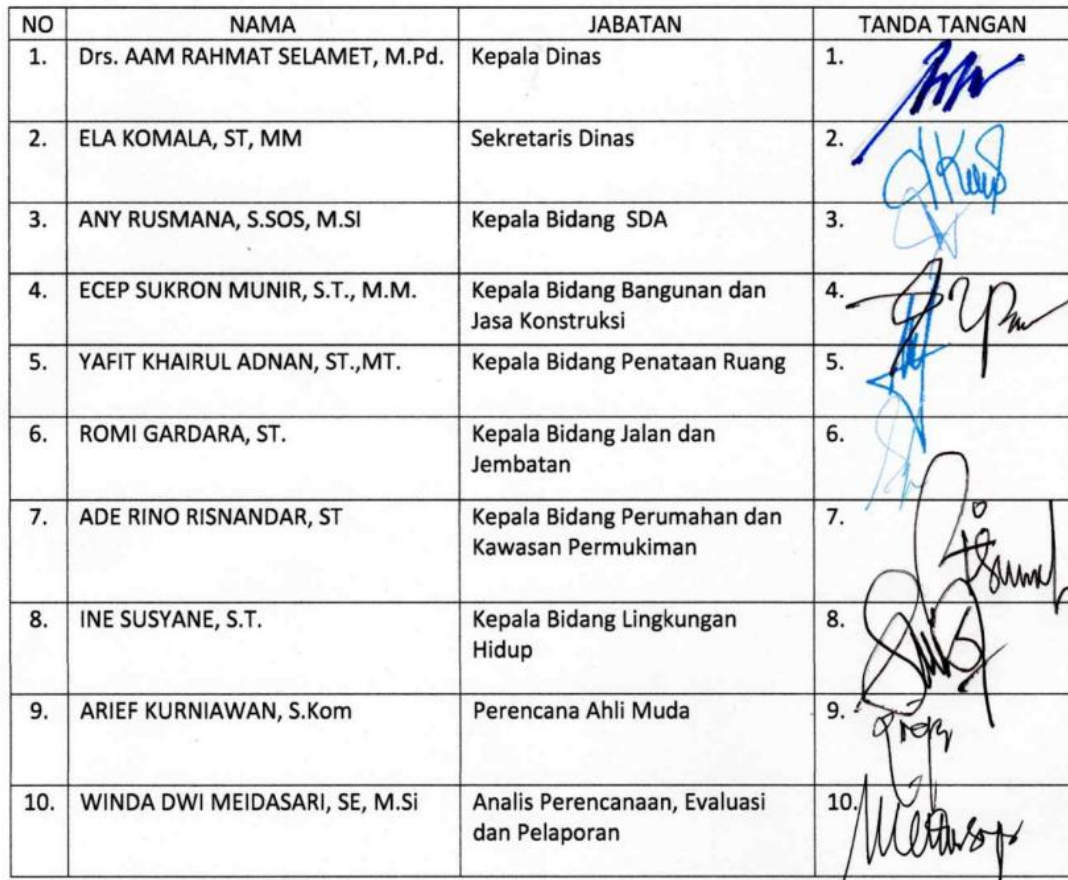 NO NAMA JABATAN TANDA TANGAN
1. Drs. AAM RAHMAT SELAMET, M.Pd. Kepala Dinas 1.
2. ELA KOMALA, ST, MM Sekretaris Dinas 2.
3. ANY RUSMANA, S.SOS, M.SI Kepala Bidang SDA 3.
4. ECEP SUKRON MUNIR, S.T., M.M. Kepala Bidang Bangunan dan 4.
Jasa Konstruksi
5. YAFIT KHAIRUL ADNAN, ST.,MT. Kepala Bidang Penataan Ruang 5.
6. ROMI GARDARA, ST. Kepala Bidang Jalan dan 6.
Jembatan
7. ADE RINO RISNANDAR, ST Kepala Bidang Perumahan dan 7.
Kawasan Permukiman
8. INE SUSYANE, S.T. Kepala Bidang Lingkungan 8.
Hidup
9. ARIEF KURNIAWAN, S.Kom Perencana Ahli Muda 9.
10. WINDA DWI MEIDASARI, SE, M.Si Analis Perencanaan, Evaluasi 10.
dan Pelaporan